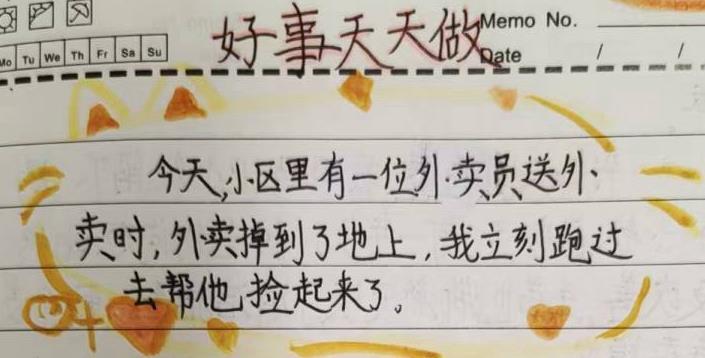 好事天天做
Memo No.
Mo Tu We Th Fr Sa Su
Date / /
今天,小区里有一位外卖员送外
卖时,外卖掉到了地上,我立刻跑过
去帮他捡起来了。